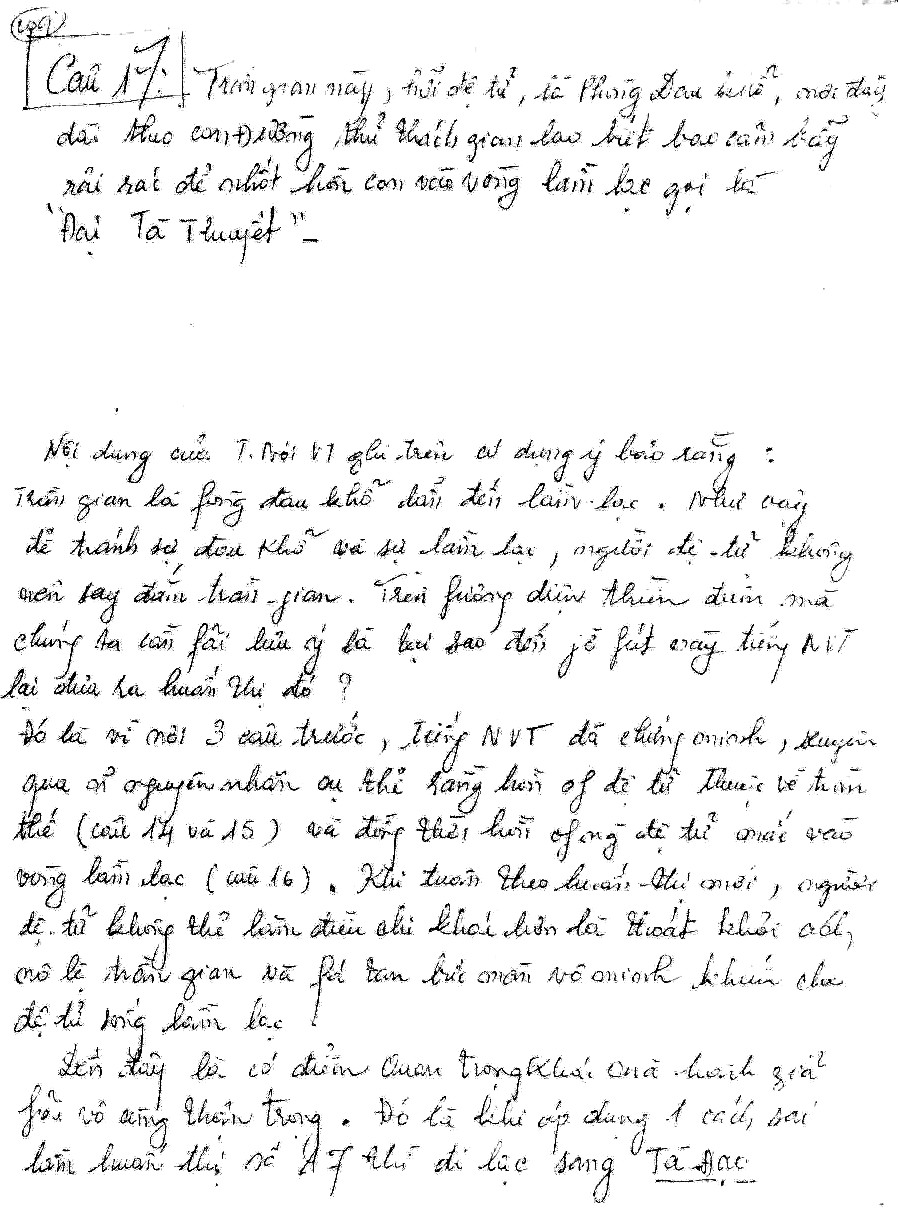 Câu 17: Trần gian này, hỡi đệ tử, là Phòng Đau khổ, nơi đây
dài theo con Đường thử thách gian lao biết bao cạm bẫy
rải rác để nhốt hồn con vào vòng lầm lạc gọi là
"Đại Tà Thuyết" –
Nội dung của T. Nói VT ghi trên có dụng ý bảo rằng :
Trần gian là fòng đau khổ dẫn đến lầm-lạc. Như vậy
để tránh sự đau khổ và sự lầm lạc, người đệ-tử không
nên say đắm trần-gian. Trên fương diện thiền định mà
chúng ta cần fải lưu ý là tại sao đến jờ fút này tiếng NVT
lại đưa ra huấn thị đó ?
Đó là vì nơi 3 câu trước, tiếng NVT đã chứng minh, xuyên
qua nguyên nhân cụ thể rằng hồn of đệ tử thuộc về trần
thế (câu 14 và 15) và đồng thời hồn of ng đệ tử mắc vào
vòng lầm lạc (câu 16). Khi tuân theo huấn-thị mới, người
đệ-tử không thể làm điều chi khác hơn là thoát khỏi ách
nô lệ trần gian và fá tan bức màn vô minh khiến cho
đệ tử sống lầm lạc !
Đến đây là có điểm Quan trọng khác mà hành giả
fải vô cùng thận trọng. Đó là khi áp dụng 1 cách sai
lầm huấn thị số 17 thì đi lạc sang Tà Đạo